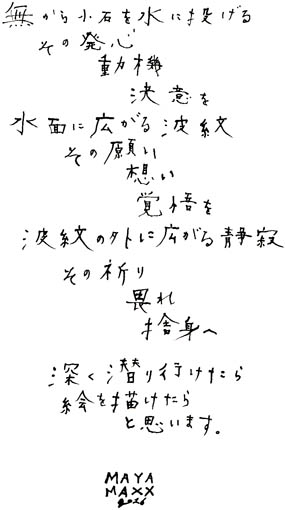 無から小石を水に投げる
その発心
動機
決意を
水面に広がる波紋
その願い
想い
覚悟を
波紋の外に広がる静寂
その祈り
畏れ
捨身へ
深く潜り行けたら
絵を描けたら
と思います。
MAYA
MAXX
2016